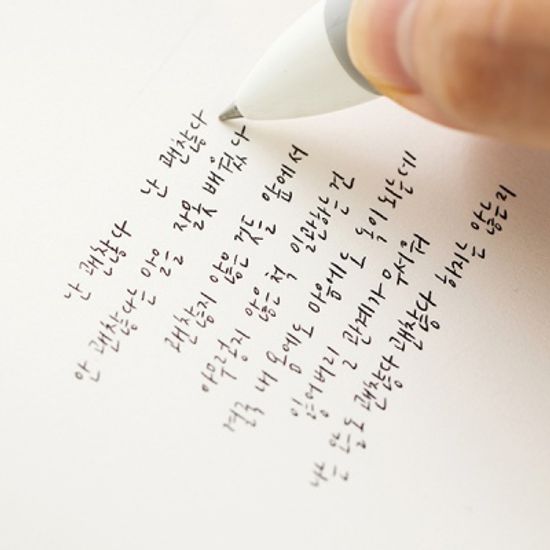 난 괜찮다 난 괜찮다
안 괜찮다는 말을 잘못 배웠다
괜찮지 않은 것들 앞에서
아무렇지 않은 척 일관하는 건
결국 내 몸에도 마음에도 독이 되는데
잃어버릴 관계가 무서워
나는 오늘도 괜찮다 괜찮다 하지는 않는지